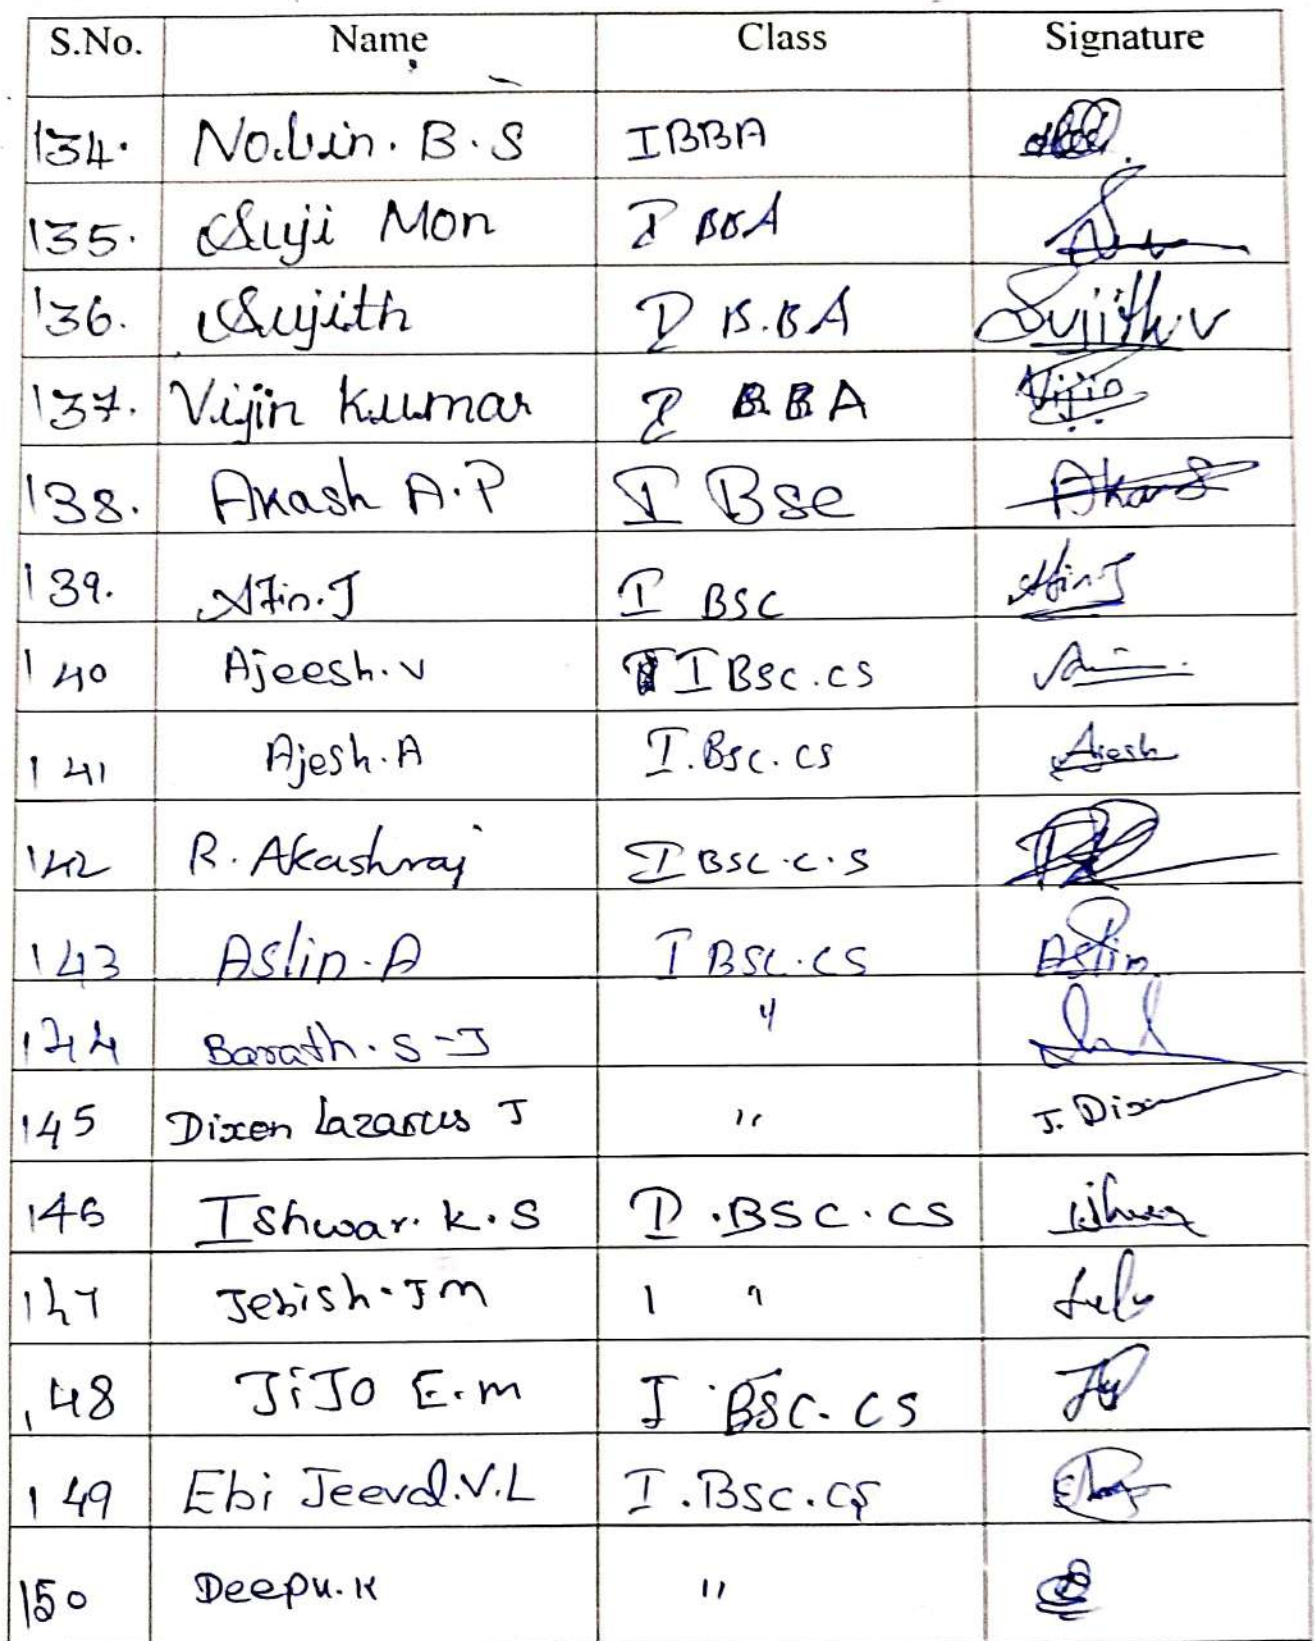 S.No. Name Class Signature
134. Nobin. B. S I BBA
135. Suji Mon I BBA
136. Sujith I B.BA Sujith v
137. Vijin Kumar I B.B A Vijin
138. Akash A.P I Bsc Akash
139. I BSC
140 Ajeesh.v I Bsc.cs
141 Ajesh.A I.Bsc.cs Ajesh
142 R. Akashraj I BSC.C.S
143 Aslin.A I BSC.CS Aslin
144 Barath.S-J "
145 Dixen Lazarus J " J. Dixen
146 Ishwar.K.S I.BSC.CS
147 Jebish.J M I "
148 JiJO E.m I BSC. CS
149 Ebi Jeeval.V.L I.BSC.CS
150 Deepu.K "